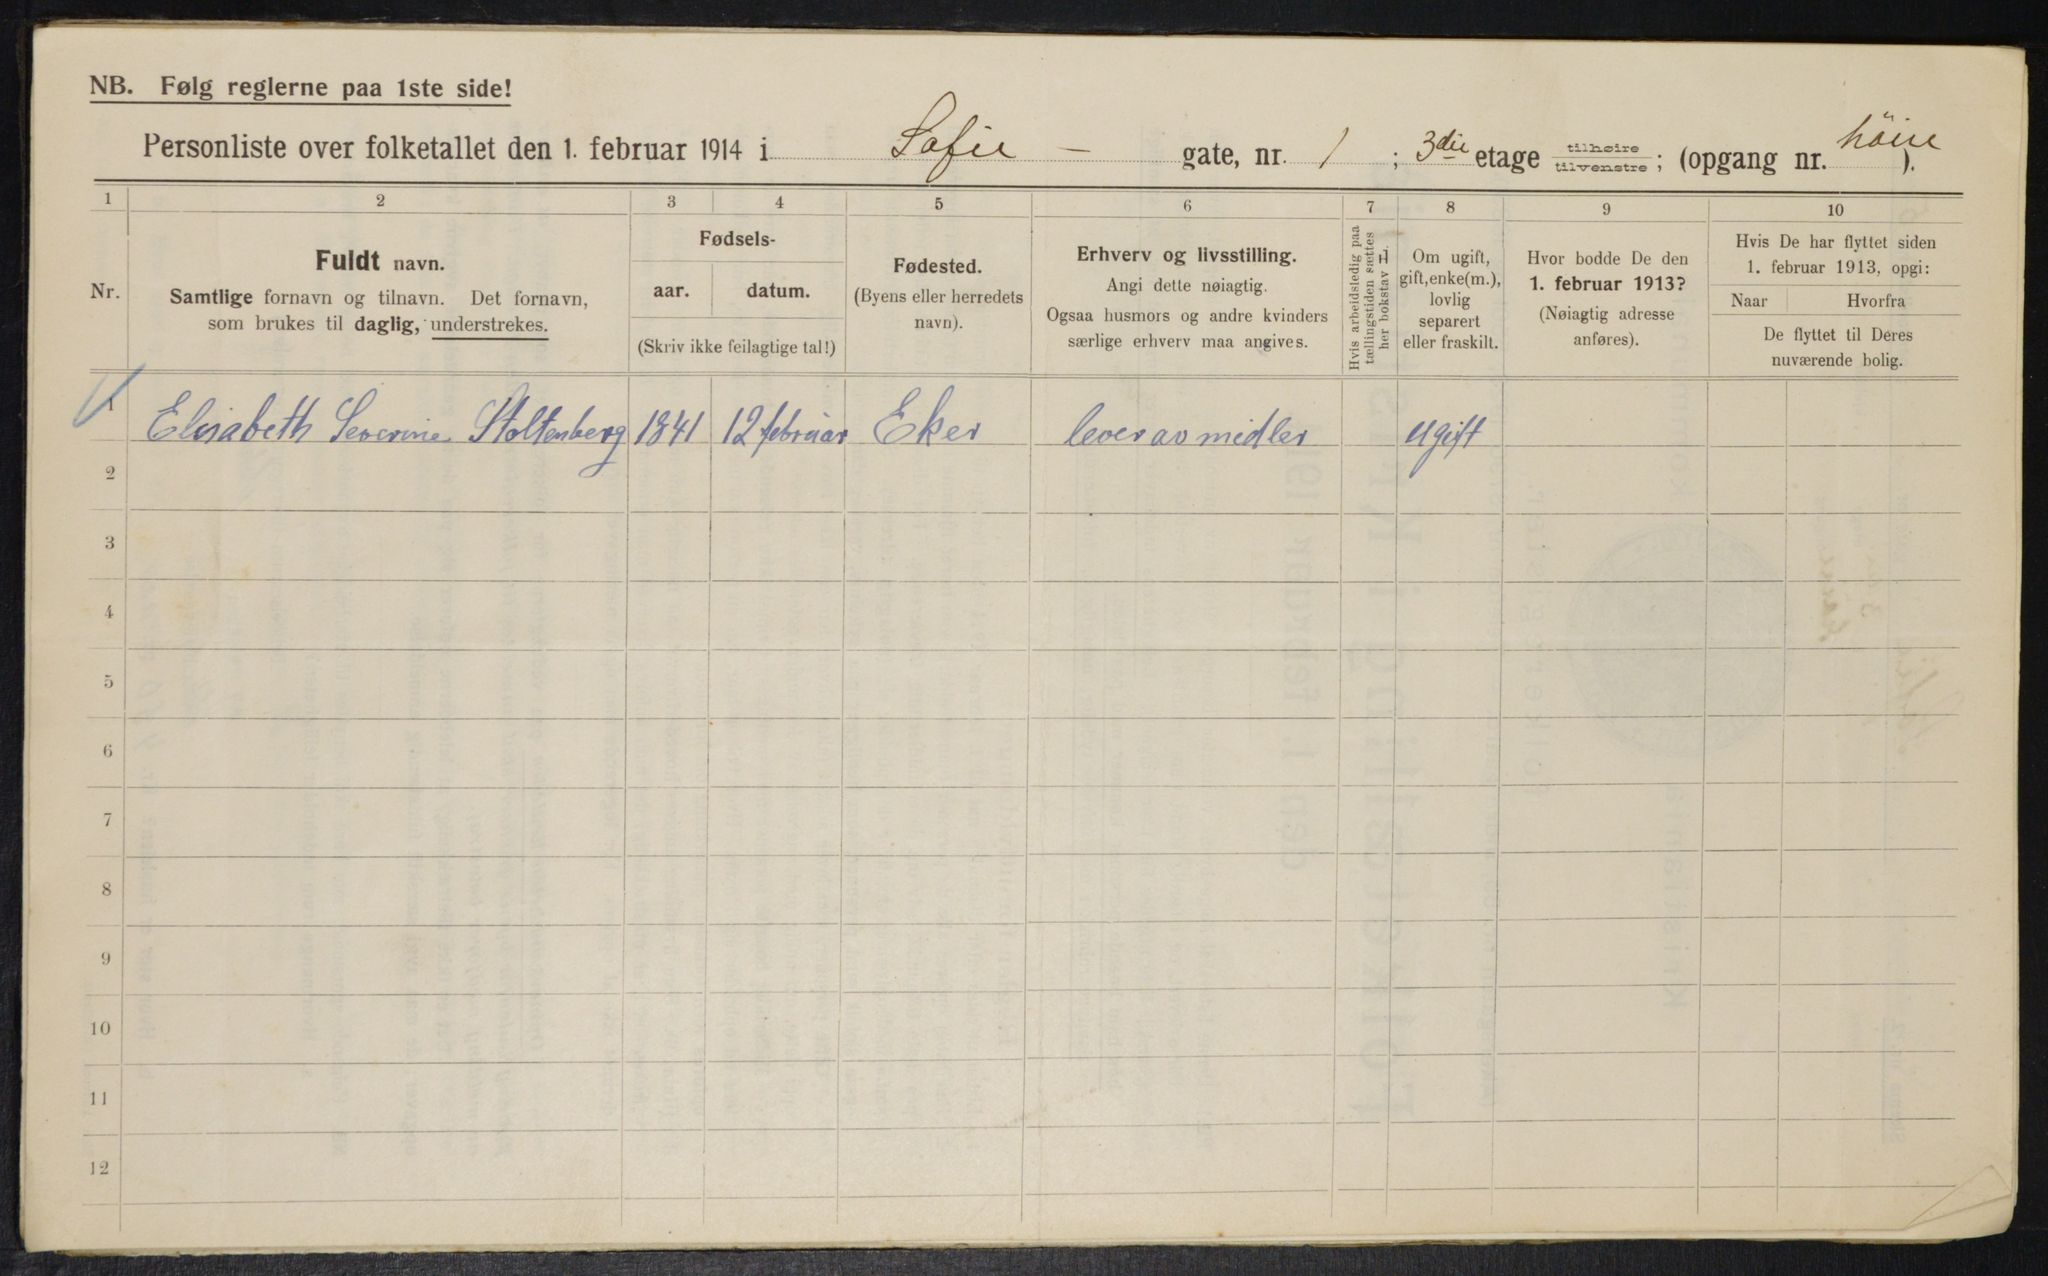 NB. Følg reglerne paa 1ste side!
Personliste over folketallet den 1. februar 1914 i Sofie - gate, nr. 1 ; 3die etage tilhøire/tilvenstre; (opgang nr. höire ).
1 2 3 4 5 6 7 8 9 10
Nr.
Fuldt navn.
Samtlige fornavn og tilnavn. Det fornavn,
som brukes til daglig, understrekes.
Fødsels-
aar. datum.
(Skriv ikke feilagtige tal!)
Fødested.
(Byens eller herredets
navn).
Erhverv og livsstilling.
Angi dette nøiagtig.
Ogsaa husmors og andre kvinders
særlige erhverv maa angives.
Hvis arbeidsledig paa
tællingstiden sættes
her bokstav L.
Om ugift,
gift, enke(m.),
lovlig
separert
eller fraskilt.
Hvor bodde De den
1. februar 1913?
(Nøiagtig adresse
anføres).
Hvis De har flyttet siden
1. februar 1913, opgi:
Naar Hvorfra
De flyttet til Deres
nuværende bolig.
1 Elisabeth Severine Stoltenberg 1841 12 februar Eker lever av midler ugift
2
3
4
5
6
7
8
9
10
11
12